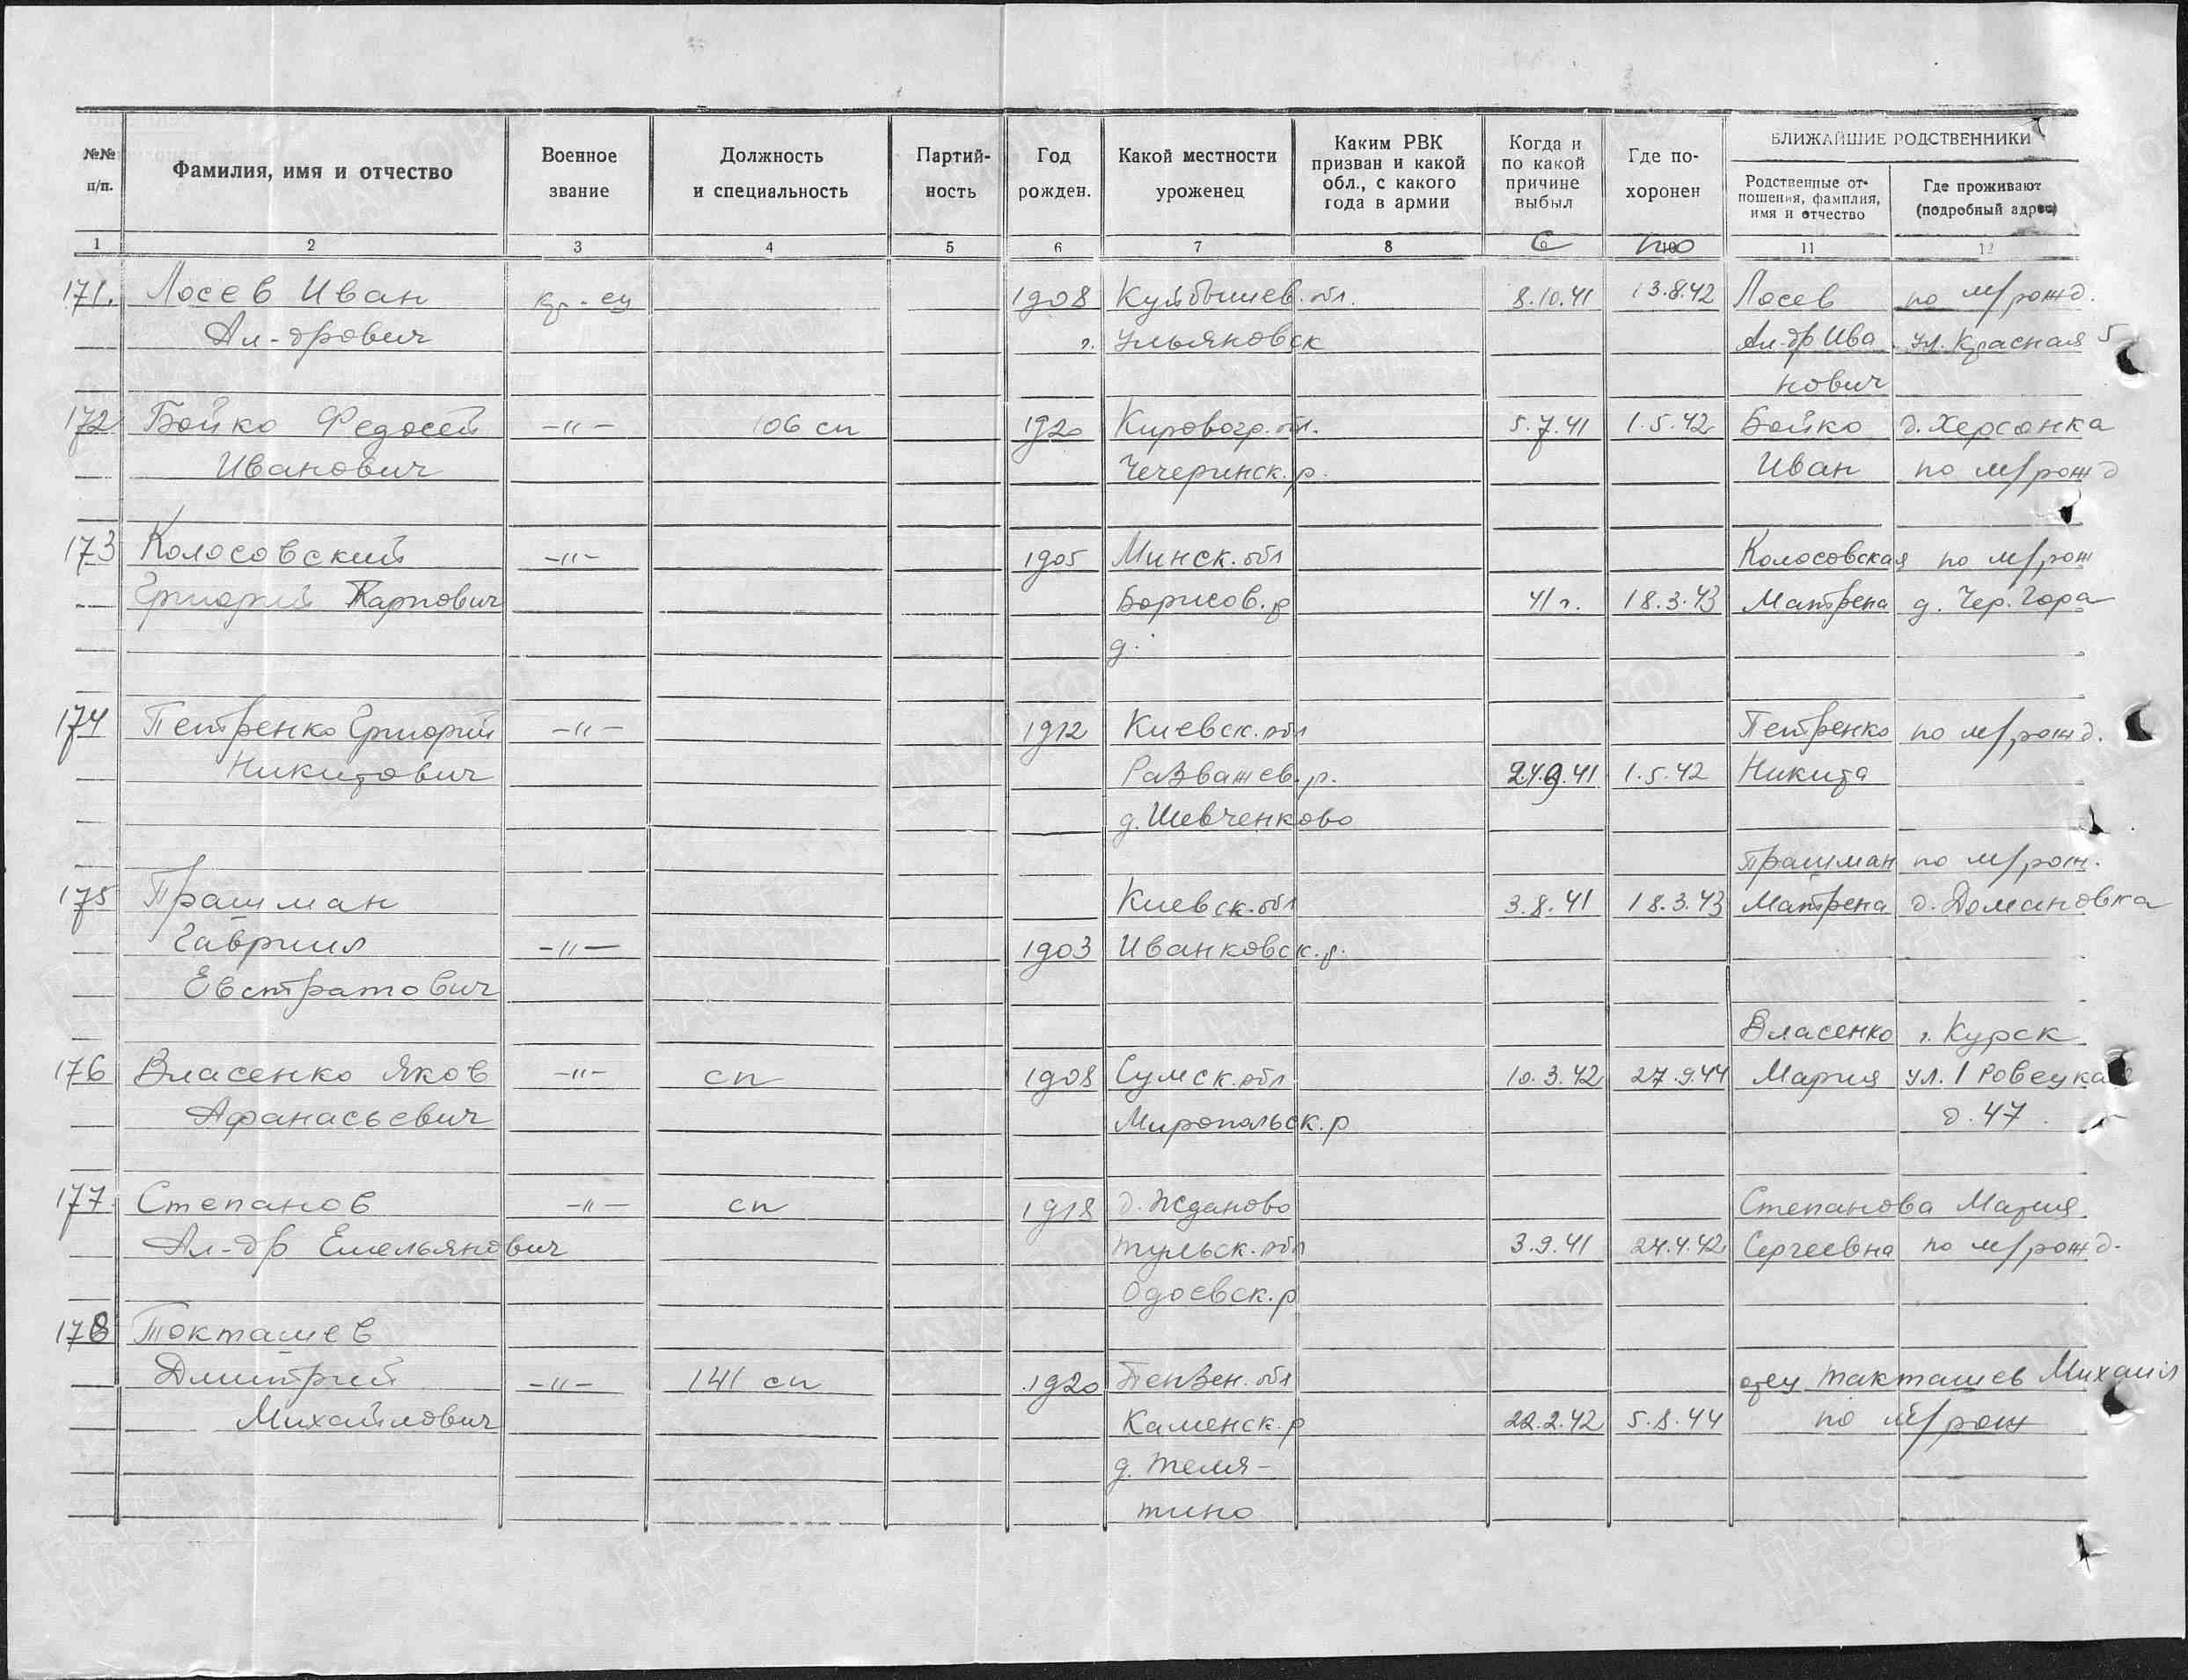 №№ п/п. Фамилия, имя и отчество Военное звание Должность и специальность Партий- ность Год рожден. Какой местности уроженец Каким РВК призван и какой обл., с какого года в армии Когда и по какой причине выбыл Где по- хоронен БЛИЖАЙШИЕ РОДСТВЕННИКИ
Родственные от- ношения, фамилия, имя и отчество Где проживают (подробный адрес)
1 2 3 4 5 6 7 8 С по 11 12
171. Лосев Иван кр-ец 1908 Куйбышев. обл. 8.10.41 13.8.42 Лосев по м/рожд.
Ал-дрович г. Ульяновск Ал-др Ива ул. Красная 5
нович
172 Бойко Федосей -"- 106 сп 1920 Кировогр. обл. 5.7.41 1.5.42 Бойко д. Херсонка
Иванович Чечеринск. р. Иван по м/рожд
173 Колосовский -"- 1905 Минск. обл Колосовская по м/рож
Григорий Карпович Борисов. р 41 г. 18.3.43 Матрена д. Чер. Гора
д.
174 Петренко Григорий -"- 1912 Киевск. обл Петренко по м/рожд.
Никитович Разважев. р. 24.9.41 1.5.42 Никита
д. Шевченково
Прашман по м/рож.
175 Прашман Киевск. обл 3.8.41 18.3.43 Матрена д. Домановка
Гавриил -"- 1903 Иванковск. р.
Евстратович
Власенко г. Курск
176 Власенко Яков -"- сп 1908 Сумск. обл 10.3.42 27.9.44 Мария ул. 1
Афанасьевич Миропольск. р д. 47
177 Степанов -"- сп 1918 д. Жданово Степанова Мария
Ал-др Емельянович Тульск. обл 3.9.41 24.4.42 Сергеевна по м/рожд.
Одоевск. р
178 Токташев
Дмитрий -"- 141 сп 1920 Пензен. обл отец Такташев Михаил
Михайлович Каменск. р 22.2.42 5.8.44 по м/рож
д. Теля-
тино